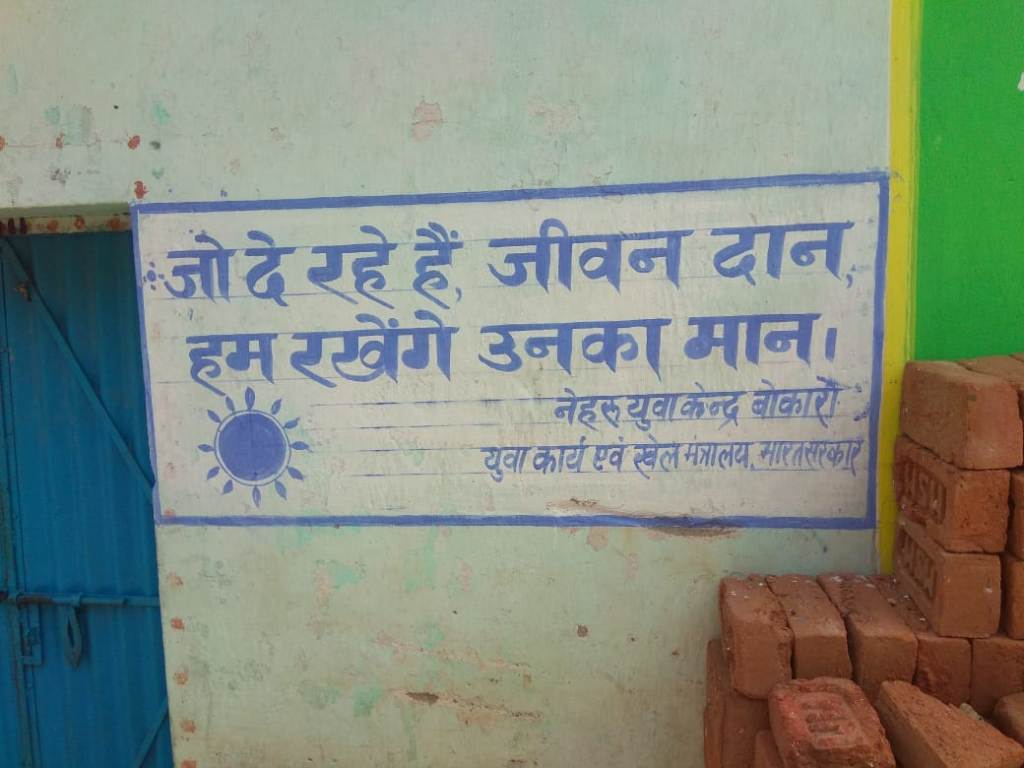 जो दे रहे हैं, जीवन दान,
हम रखेंगे उनका मान।
नेहरु युवा केन्द्र बोकारो
युवा कार्य एवं खेल मंत्रालय, भारत सरकार